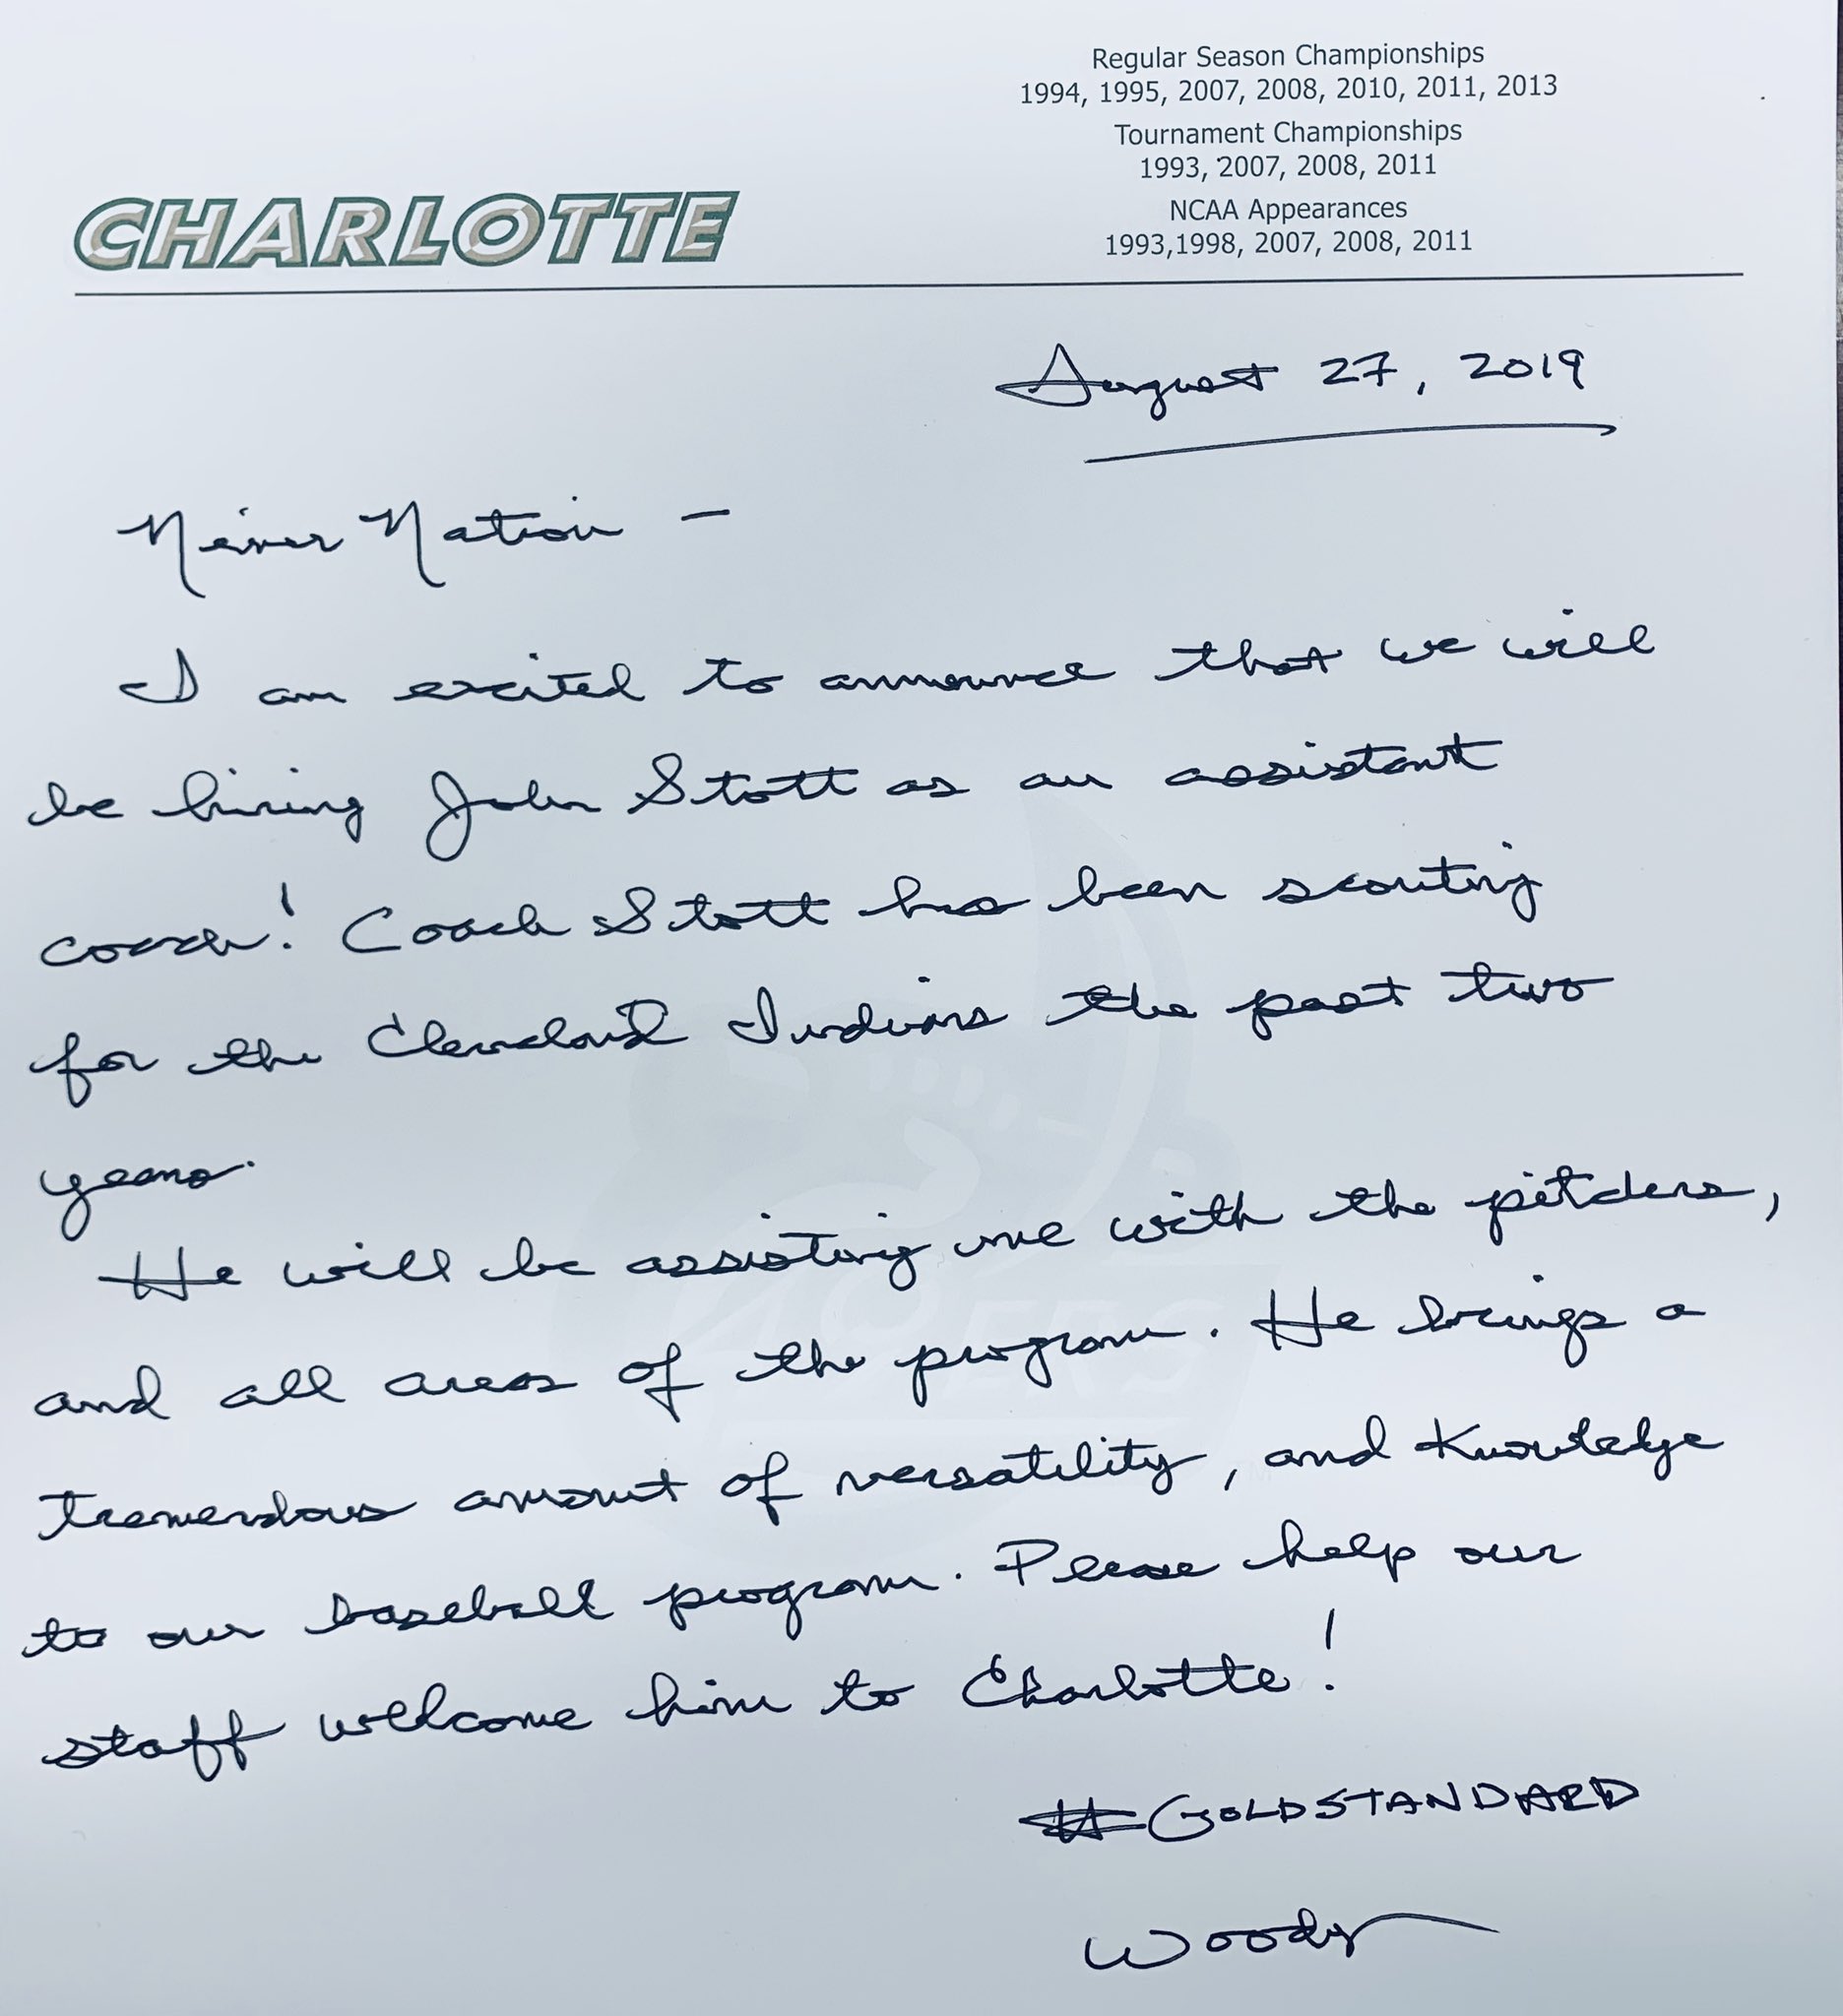 Regular Season Championships
1994, 1995, 2007, 2008, 2010, 2011, 2013
Tournament Championships
1993, 2007, 2008, 2011
NCAA Appearances
1993,1998, 2007, 2008, 2011
CHARLOTTE
August 27, 2019
Niner Nation -
I am excited to announce that we will
be hiring John Stott as an assistant
coach! Coach Stott has been scouting
for the Cleveland Indians the past two
years.
He will be assisting me with the pitchers,
and all areas of the program. He brings a
tremendous amount of versatility, and knowledge
to our baseball program. Please help our
staff welcome him to Charlotte!
#GOLDSTANDARD
Woody